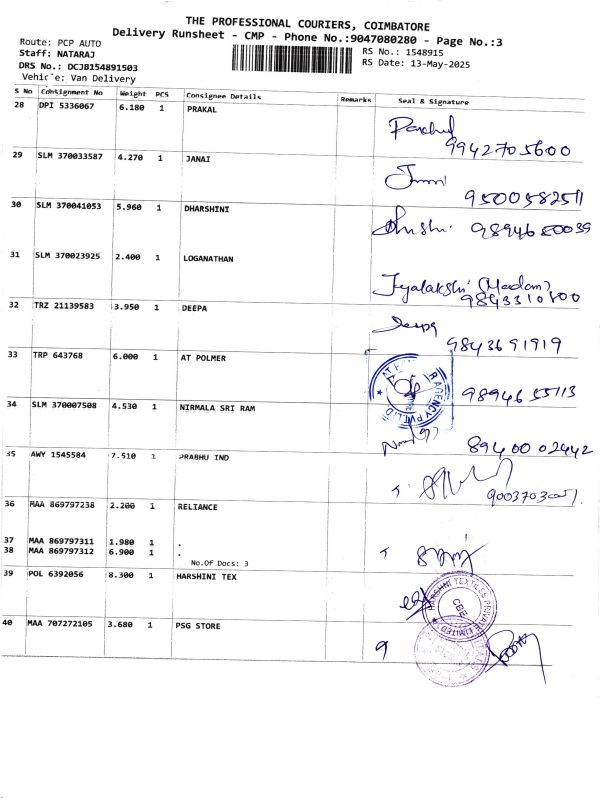 THE PROFESSIONAL COURIERS, COIMBATORE
Delivery Runsheet - CMP - Phone No.:9047080280 - Page No.:3
Route: PCP AUTO
Staff: NATARAJ
DRS No.: DCJB154891503
Vehicle: Van Delivery
RS No.: 1548915
RS Date: 13-May-2025
S No Consignment No Weight PCS Consignee Details Remarks Seal & Signature
28 DPI 5336067 6.180 1 PRAKAL
9942705600
29 SLM 370033587 4.270 1 JANAI
9500582511
30 SLM 370041053 5.960 1 DHARSHINI
9894680039
31 SLM 370023925 2.400 1 LOGANATHAN
(Madam)
9843310800
32 TRZ 21139583 3.950 1 DEEPA
Deepa
9843691919
33 TRP 643768 6.000 1 AT POLMER
AGENCY PVT.LTD
9894655113
34 SLM 370007508 4.530 1 NIRMALA SRI RAM
8940002442
35 AWY 1545584 7.510 1 PRABHU IND
36 MAA 869797238 2.200 1 RELIANCE
37 MAA 869797311 1.980 1 .
38 MAA 869797312 6.900 1 .
No.Of Docs: 3
39 POL 6392056 8.300 1 HARSHINI TEX
HARSHINI TEXTILES PRIVATE LIMITED
CBE
40 MAA 707272105 3.680 1 PSG STORE
9